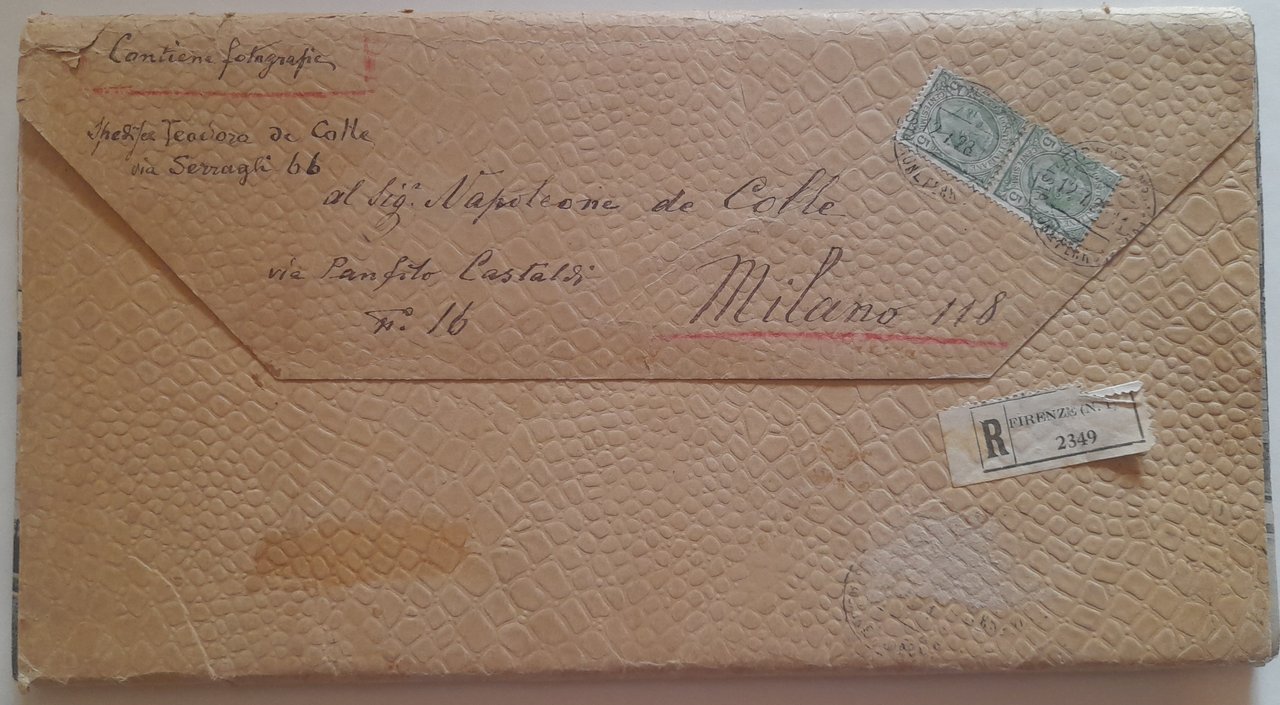 Contiene fotografie
Teodoro de Colle
via Serragli 66
al Sig.r Napoleone de Colle
via Panfilo Castaldi
N.o 16
Milano 118
R
FIRENZE (N. 1)
2349